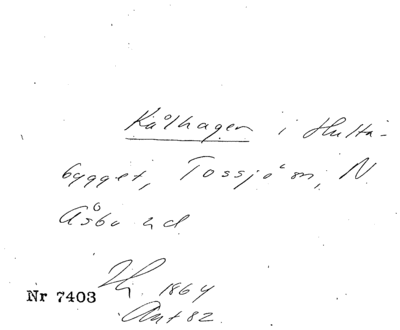 Kålhagen i Hulta-
bygget, Tossjö sn, N
Åsbo hd
Hj. 1864
Nr 7403
Ant 82